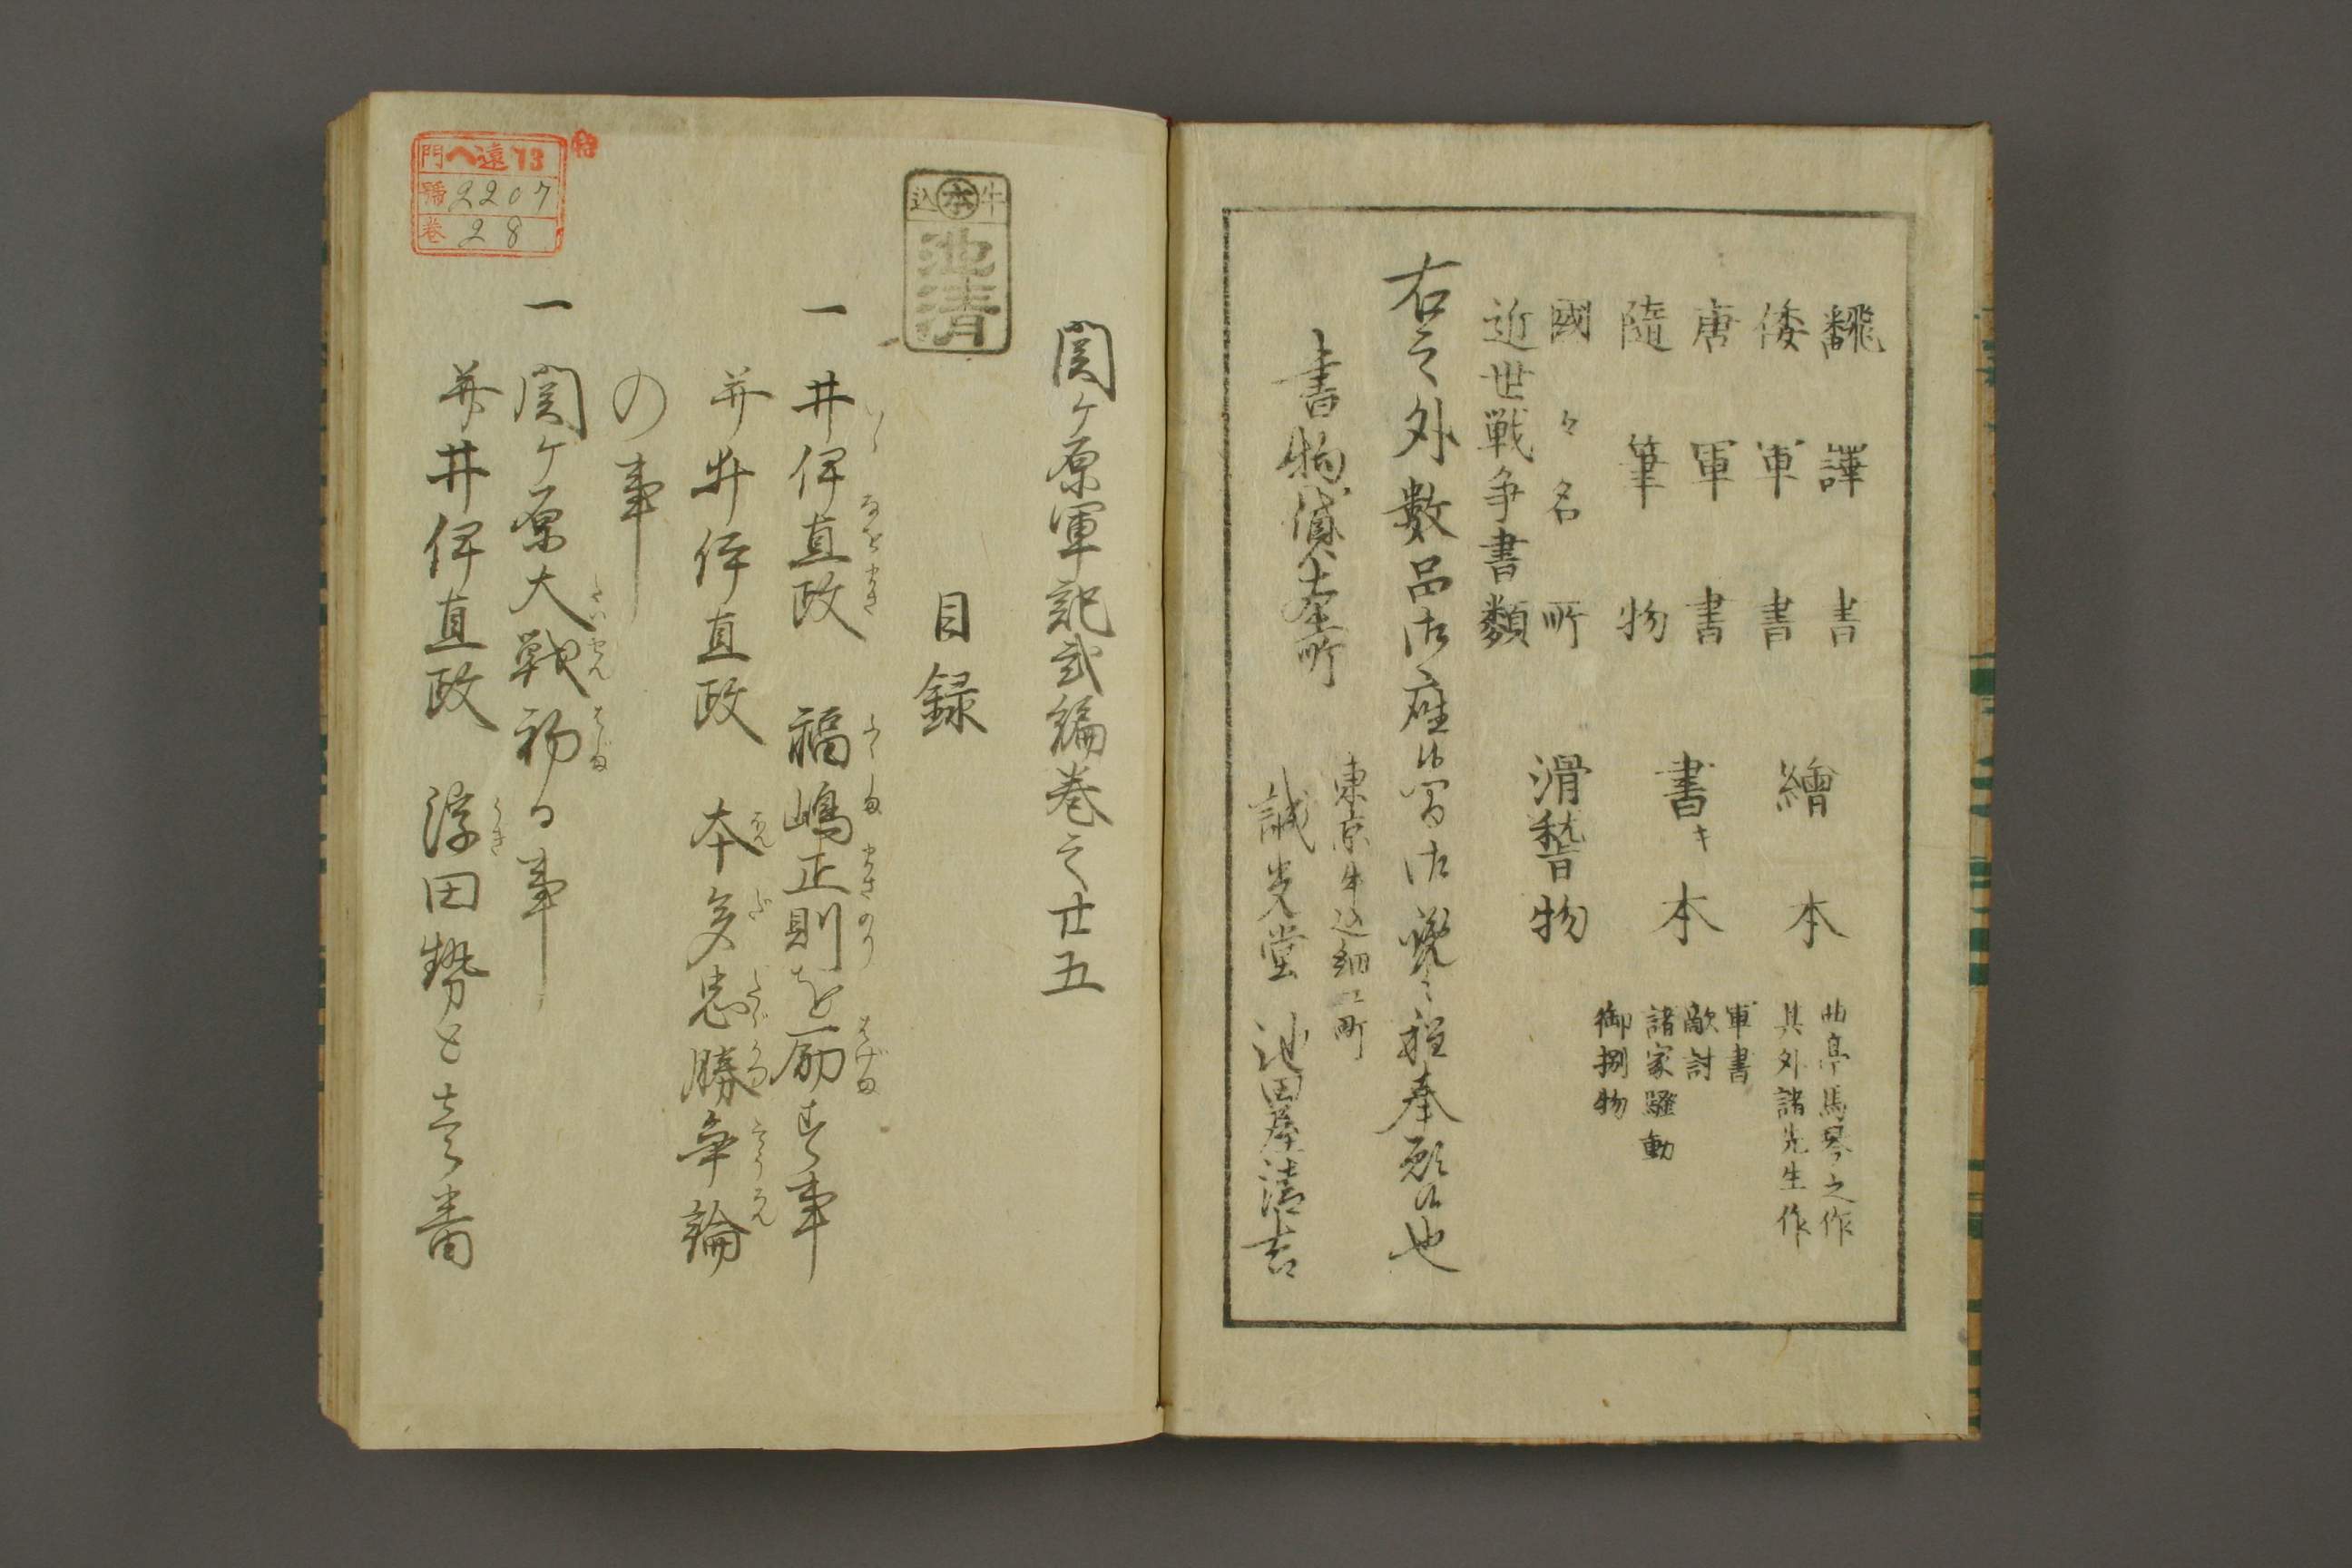 飜譯書
倭軍書
唐軍書
隨筆物
國々名所
近世戦争書類
繪本
書キ本
滑稽物
曲亭馬琴之作
其外諸先生作
軍書
敵討
諸家騒動
御捌物
右之外數品御座候間御覧之程奉願候也
書物貸本所
東京牛込細工町
誠光堂 池田屋清吉
関ヶ原軍記弐編巻之廿五
牛本込
池清
目録
一 井伊直政 福嶋正則を励す事
并井伊直政 本多忠勝争論
の事
一 関ヶ原大戦初る事
并井伊直政 浮田勢と壱番
門 ヘ遠13
號 2207
巻 28